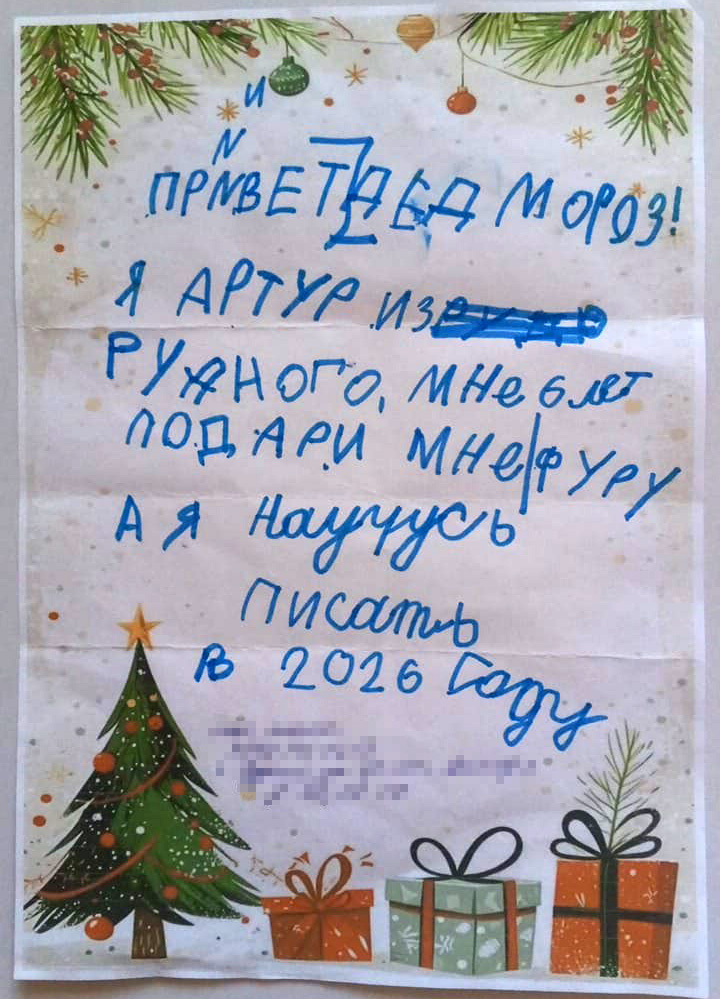 и
N
ПРNВЕТ ДЕД МОРОЗ!
Я АРТУР ИЗ
РУЖНОГО, МНе 6 лет
ПОДАРИ МНе ФУРУ
А Я научусь
писать
в 2026 году